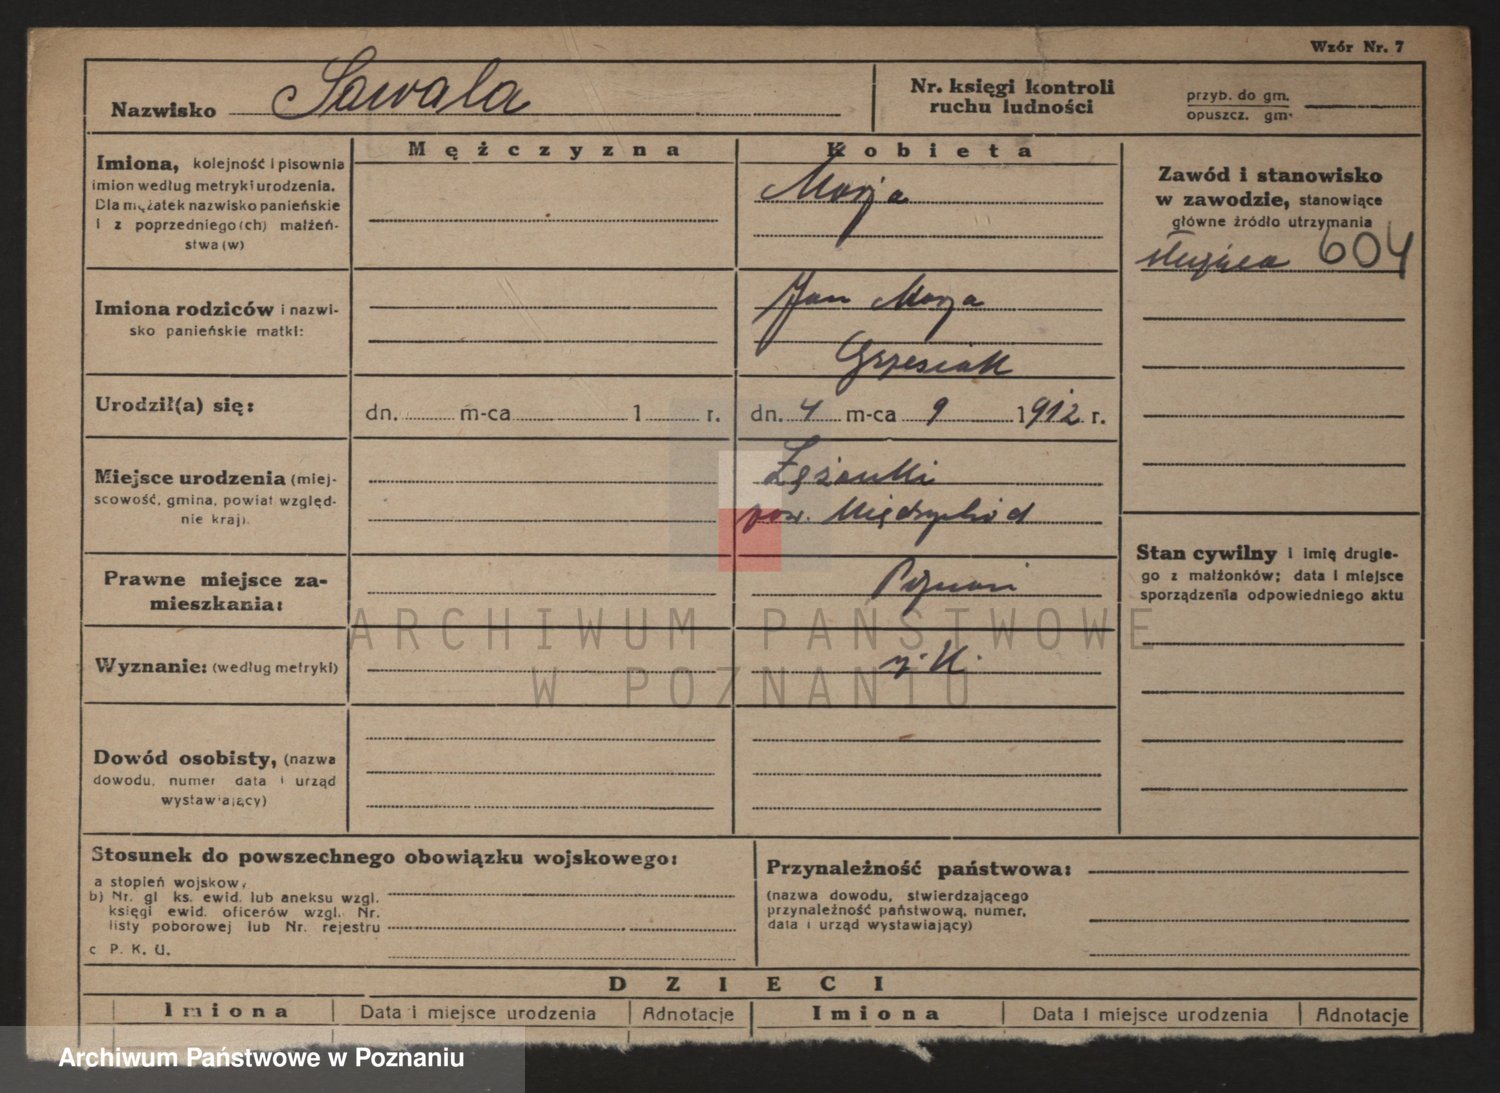 Wzór Nr. 7
Nazwisko Sawala
Nr. księgi kontroli
ruchu ludności
przyb. do gm.
opuszcz. gm.
Mężczyzna
Kobieta
Imiona, kolejność i pisownia
imion według metryki urodzenia.
Dla mężatek nazwisko panieńskie
i z poprzedniego(ch) małżeń-
stwa(w)
Marja
Zawód i stanowisko
w zawodzie, stanowiące
główne źródło utrzymania
służąca 604
Imiona rodziców i nazwi-
sko panieńskie matki:
Jan Marja
Grzesiak
Urodził(a) się:
dn. m-ca 1 r.
dn. 4 m-ca 9 1912 r.
Miejsce urodzenia (miej-
scowość, gmina, powiat względ-
nie kraj).
pow. Międzychód
Stan cywilny i imię drugie-
go z małżonków; data i miejsce
sporządzenia odpowiedniego aktu
Prawne miejsce za-
mieszkania:
Poznań
Wyznanie: (według metryki)
r. k.
Dowód osobisty, (nazwa
dowodu, numer data i urząd
wystawiający)
Stosunek do powszechnego obowiązku wojskowego:
a stopień wojskow,
b) Nr. gl ks. ewid. lub aneksu wzgl.
księgi ewid. oficerów wzgl. Nr.
listy poborowej lub Nr. rejestru
c P. K. U.
Przynależność państwowa:
(nazwa dowodu, stwierdzającego
przynależność państwową, numer,
data i urząd wystawiający)
DZIECI
Imiona
Data i miejsce urodzenia
Adnotacje
Imiona
Data i miejsce urodzenia
Adnotacje
ARCHIWUM PAŃSTWOWE
W POZNANIU
Archiwum Państwowe w Poznaniu